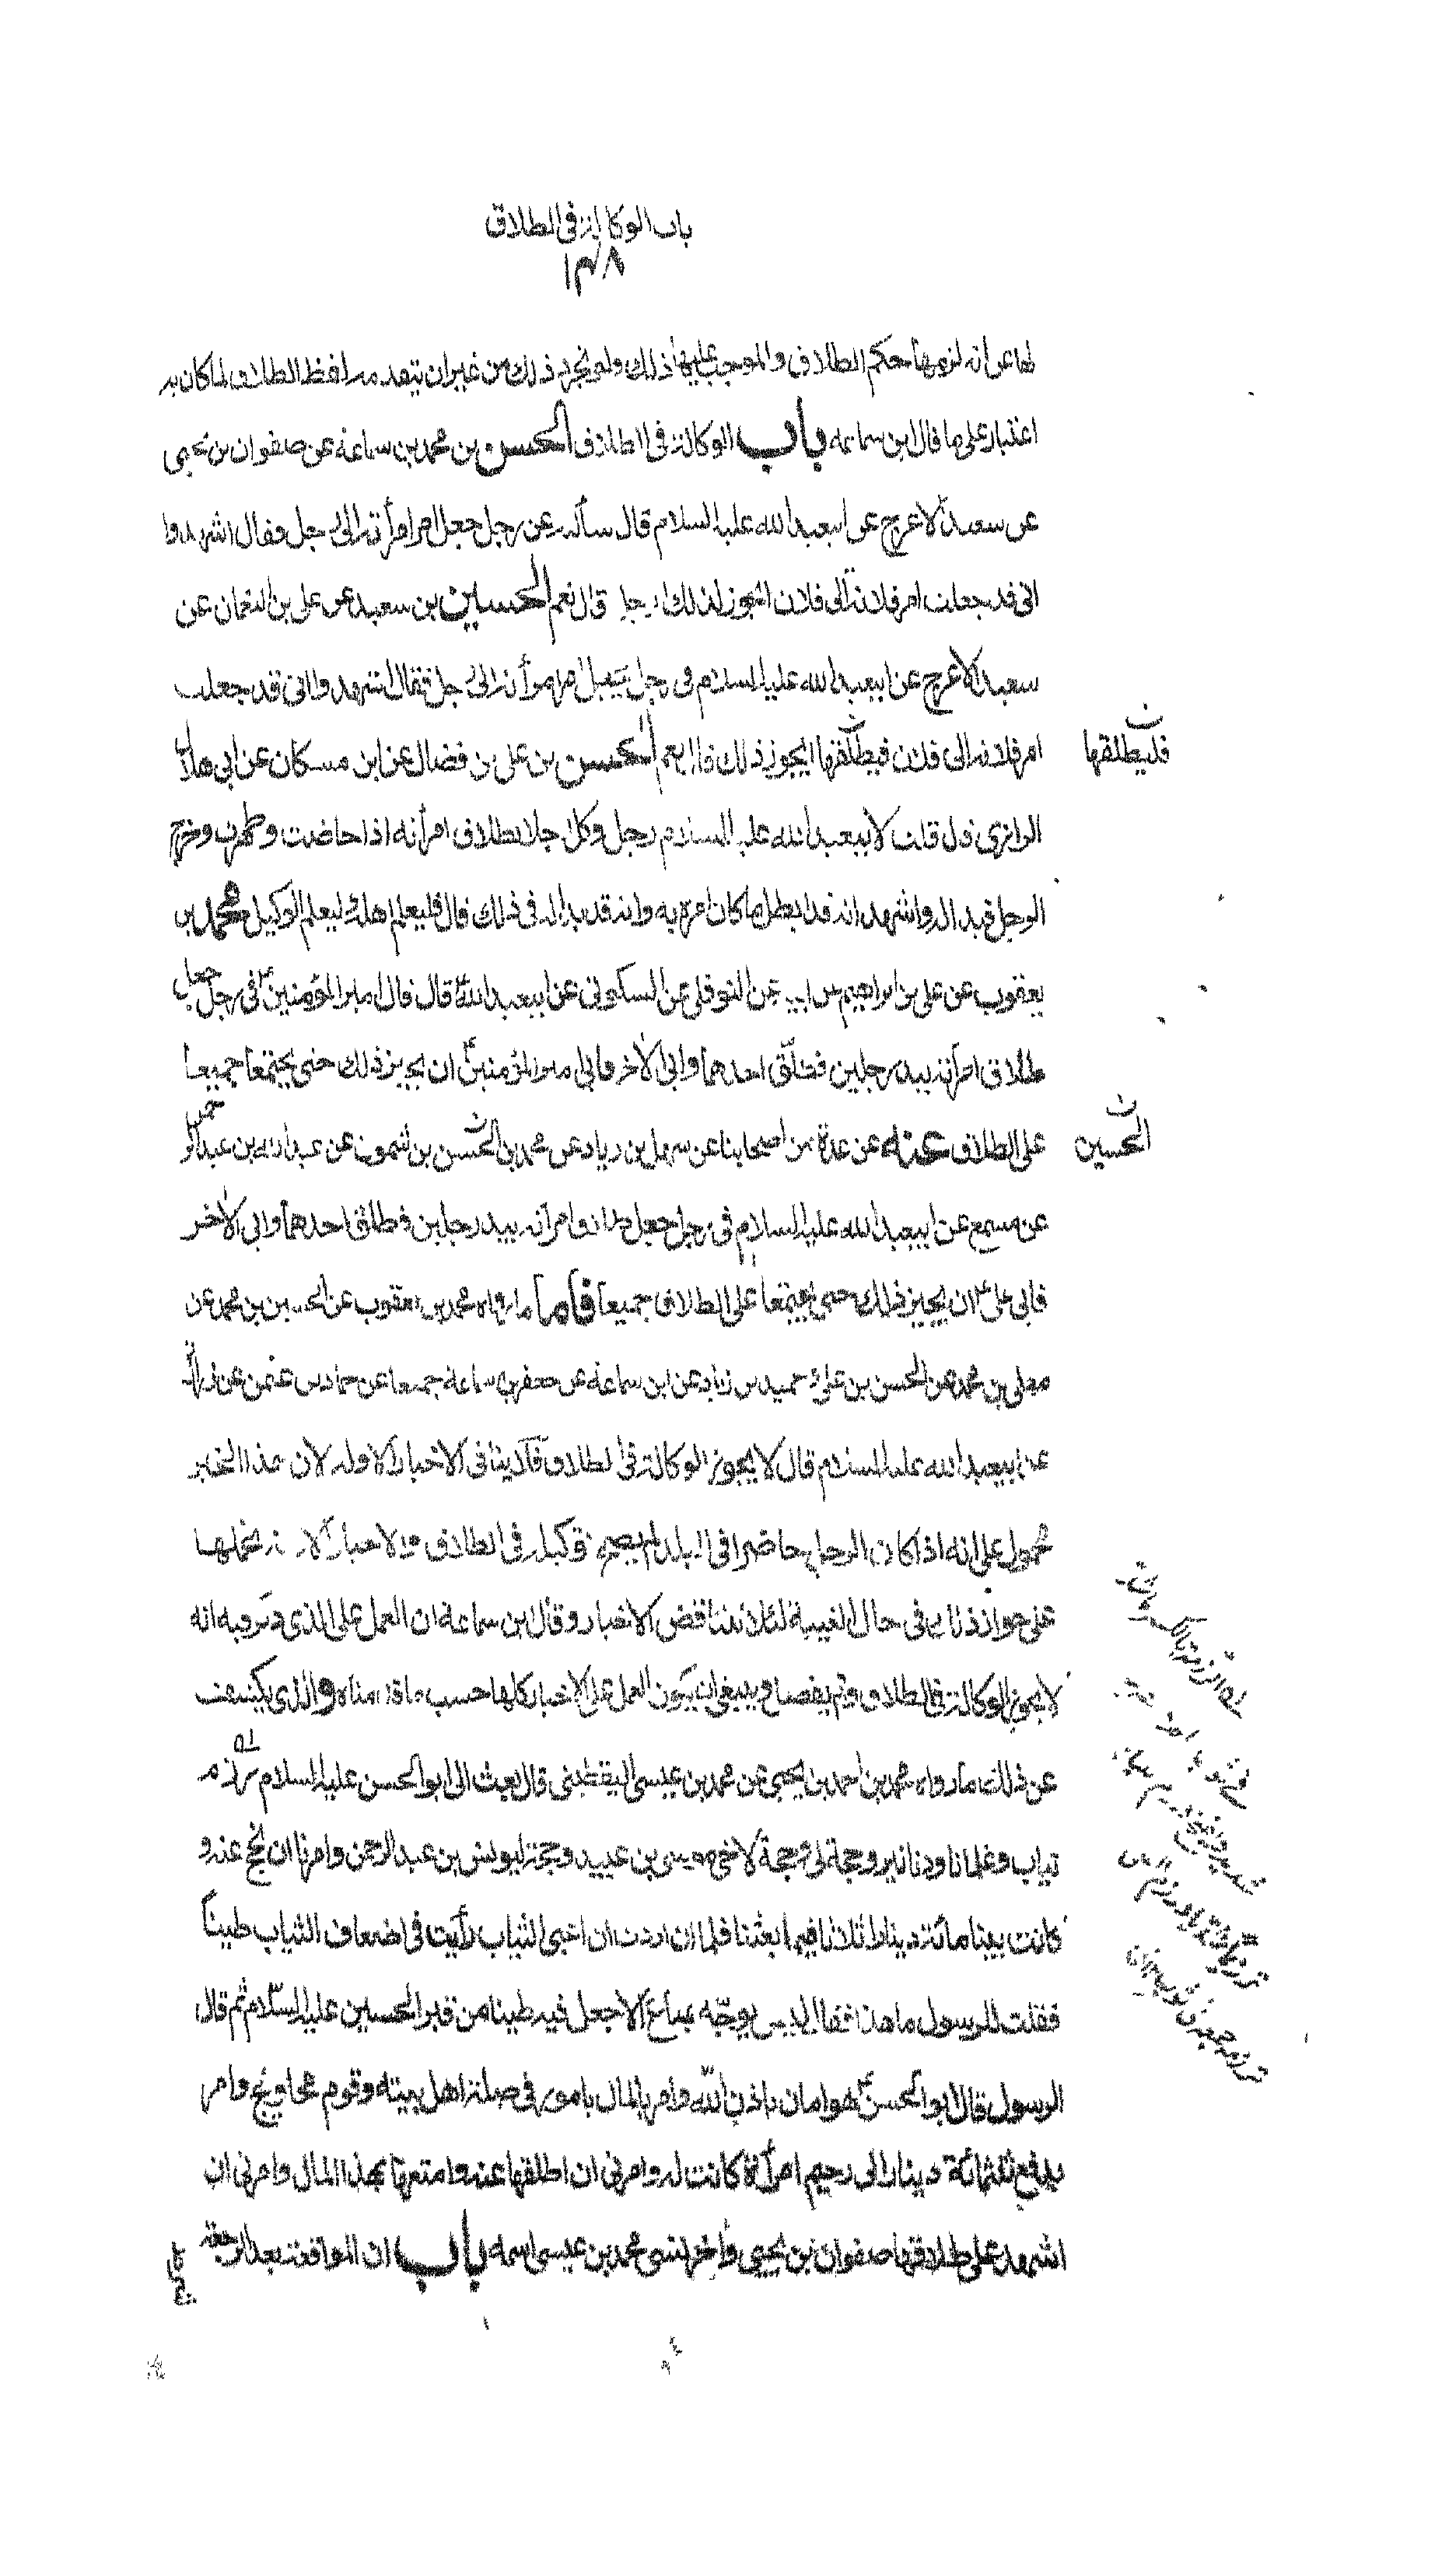 باب الوكالة في الطلاق
١٣٨
لها عن انه لزمها حكم الطلاق والموجب عليها ذلك ولو تجرد ذلك من غير ان يتقدمه لفظ الطلاق لما كان به
اعتبار على ما قال ابن سماعه باب الوكالة في الطلاق الحسن بن محمد بن سماعة عن صفوان بن يحيى
عن سعيد الاعرج عن ابيعبد الله عليه السلام قال سألته عن رجل جعل امر امرأته الى رجل وقال اشهدوا
انى قد جعلت امر فلانة الى فلان ايجوز ذلك للرجل قال نعم الحسين بن سعيد عن على بن النعمان عن
سعيد الاعرج عن ابيعبد الله عليه السلام فى رجل يجعل امر امرأته الى رجل فقال اشهدوا انى قد جعلت
امر فلانه الى فلان فيطلقها ايجوز ذلك قال نعم الحسن بن على بن فضال عن ابن مسكان عن ابى هلال
فليطلقها
ن
الرازى قال قلت لابيعبد الله عليه السلام رجل وكل رجلا بطلاق امرأته اذا حاضت وطهرت وخرج
الرجل فبدا له واشهد انه قد ابطل ما كان امره به وانه قد بدا له فى ذلك قال فليعلم اهله وليعلم الوكيل محمد بن
يعقوب عن على بن ابراهيم عن ابيه عن النوفلى عن السكونى عن ابيعبد الله ع قال قال امير المؤمنين ع فى رجل جعل
طلاق امرأته بيد رجلين فطلّق احدهما وابى الاخر فابى امير المؤمنين ع ان يجيز ذلك حتى يجتمعا جميعا
على الطلاق عنه عن عدة من اصحابنا عن سهل بن زياد عن محمد بن الحسن بن شمون عن عبد الله بن عبد الرحمن
الحسين
ن
عن مسمع عن ابيعبد الله عليه السلام فى رجل جعل طلاق امرأته بيد رجلين فطلق احدهما وابى الاخر
فابى على ع ان يجيز ذلك حتى يجتمعا على الطلاق جميعا فاما ما رواه محمد بن يعقوب عن الحسين بن محمد عن
معلى بن محمد عن الحسن بن على وحميد بن زياد عن ابن سماعة عن جعفر بن سماعة جميعا عن حماد بن عثمن عن زرارة
عن ابيعبد الله عليه السلام قال لا يجوز الوكالة فى الطلاق فلا ينافى الاخبار الاوله لان هذا الخبر
محمول على انه اذا كان الرجل حاضرا فى البلد لم يصح توكيله فى الطلاق والاخبار الاوله نحملها
على جواز ذلك فى حال الغيبة لئلا تتناقض الاخبار وقال ابن سماعة ان العمل على الذى ذكر فيه انه
لا يجوز الوكالة فى الطلاق ولم يفصل وينبغى ان يكون العمل على الاخبار كلها حسب ما قدمناه والذى يكشف
عن ذلك ما رواه محمد بن احمد بن يحيى عن محمد بن عيسى اليقطينى قال بعث الى ابو الحسن عليه السلام رزم
ثياب وغلمانا ودنانير وحجة لى وحجة لاخى موسى بن عبيد وحجة ليونس بن عبد الرحمن وامرنا ان نحج عنه و
كانت بيننا مائة دينار اثلاثا فيما بيننا فلما ان اردت ان اعبى الثياب رأيت فى اضعاف الثياب طينا
فقلت للرسول ما هذا فقال ليس يوجّه بمتاع الا جعل فيه طينا من قبر الحسين عليه السّلام ثم قال
الرسول قال ابو الحسن ع هو امان باذن الله وامر بالمال بامور فى صلة اهل بيته وقوم محاويج وامر
بدفع ثلثمائة دينار الى رحيم امرأة كانت له وامرنى ان اطلقها عنه وامتعها بهذا المال وامرنى ان
اشهد على طلاقها صفوان بن يحيى واخر نسى محمد بن عيسى اسمه باب ان المواقعة بعد الرجعة